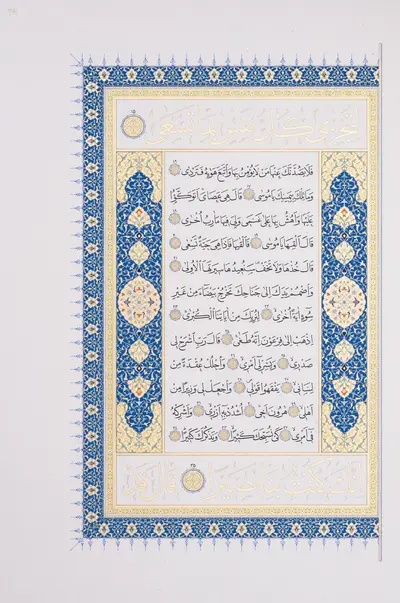 لِتُجْزٰى كُلُّ نَفْسٍ بِمَا تَسْعٰى
فَلَا يَصُدَّنَّكَ عَنْهَا مَنْ لَا يُؤْمِنُ بِهَا وَاتَّبَعَ هَوٰيهُ فَتَرْدٰى
وَمَا تِلْكَ بِيَمِينِكَ يَا مُوسٰى قَالَ هِيَ عَصَايَ أَتَوَكَّؤُا
عَلَيْهَا وَأَهُشُّ بِهَا عَلٰى غَنَمِي وَلِيَ فِيهَا مَآرِبُ أُخْرٰى
قَالَ أَلْقِهَا يَا مُوسٰى فَأَلْقٰيهَا فَإِذَا هِيَ حَيَّةٌ تَسْعٰى
قَالَ خُذْهَا وَلَا تَخَفْ سَنُعِيدُهَا سِيرَتَهَا الْأُولٰى
وَاضْمُمْ يَدَكَ إِلٰى جَنَاحِكَ تَخْرُجْ بَيْضَاءَ مِنْ غَيْرِ
سُوءٍ آيَةً أُخْرٰى لِنُرِيَكَ مِنْ آيَاتِنَا الْكُبْرٰى
اِذْهَبْ إِلٰى فِرْعَوْنَ إِنَّهُ طَغٰى قَالَ رَبِّ اشْرَحْ لِي
صَدْرِي وَيَسِّرْ لِي أَمْرِي وَاحْلُلْ عُقْدَةً مِنْ
لِسَانِي يَفْقَهُوا قَوْلِي وَاجْعَلْ لِي وَزِيرًا مِنْ
أَهْلِي هٰرُونَ أَخِي اُشْدُدْ بِهِ أَزْرِي وَأَشْرِكْهُ
فِي أَمْرِي كَيْ نُسَبِّحَكَ كَثِيرًا وَنَذْكُرَكَ كَثِيرًا
كُنْتَ بِنَا بَصِيرًا قَالَ قَدْ